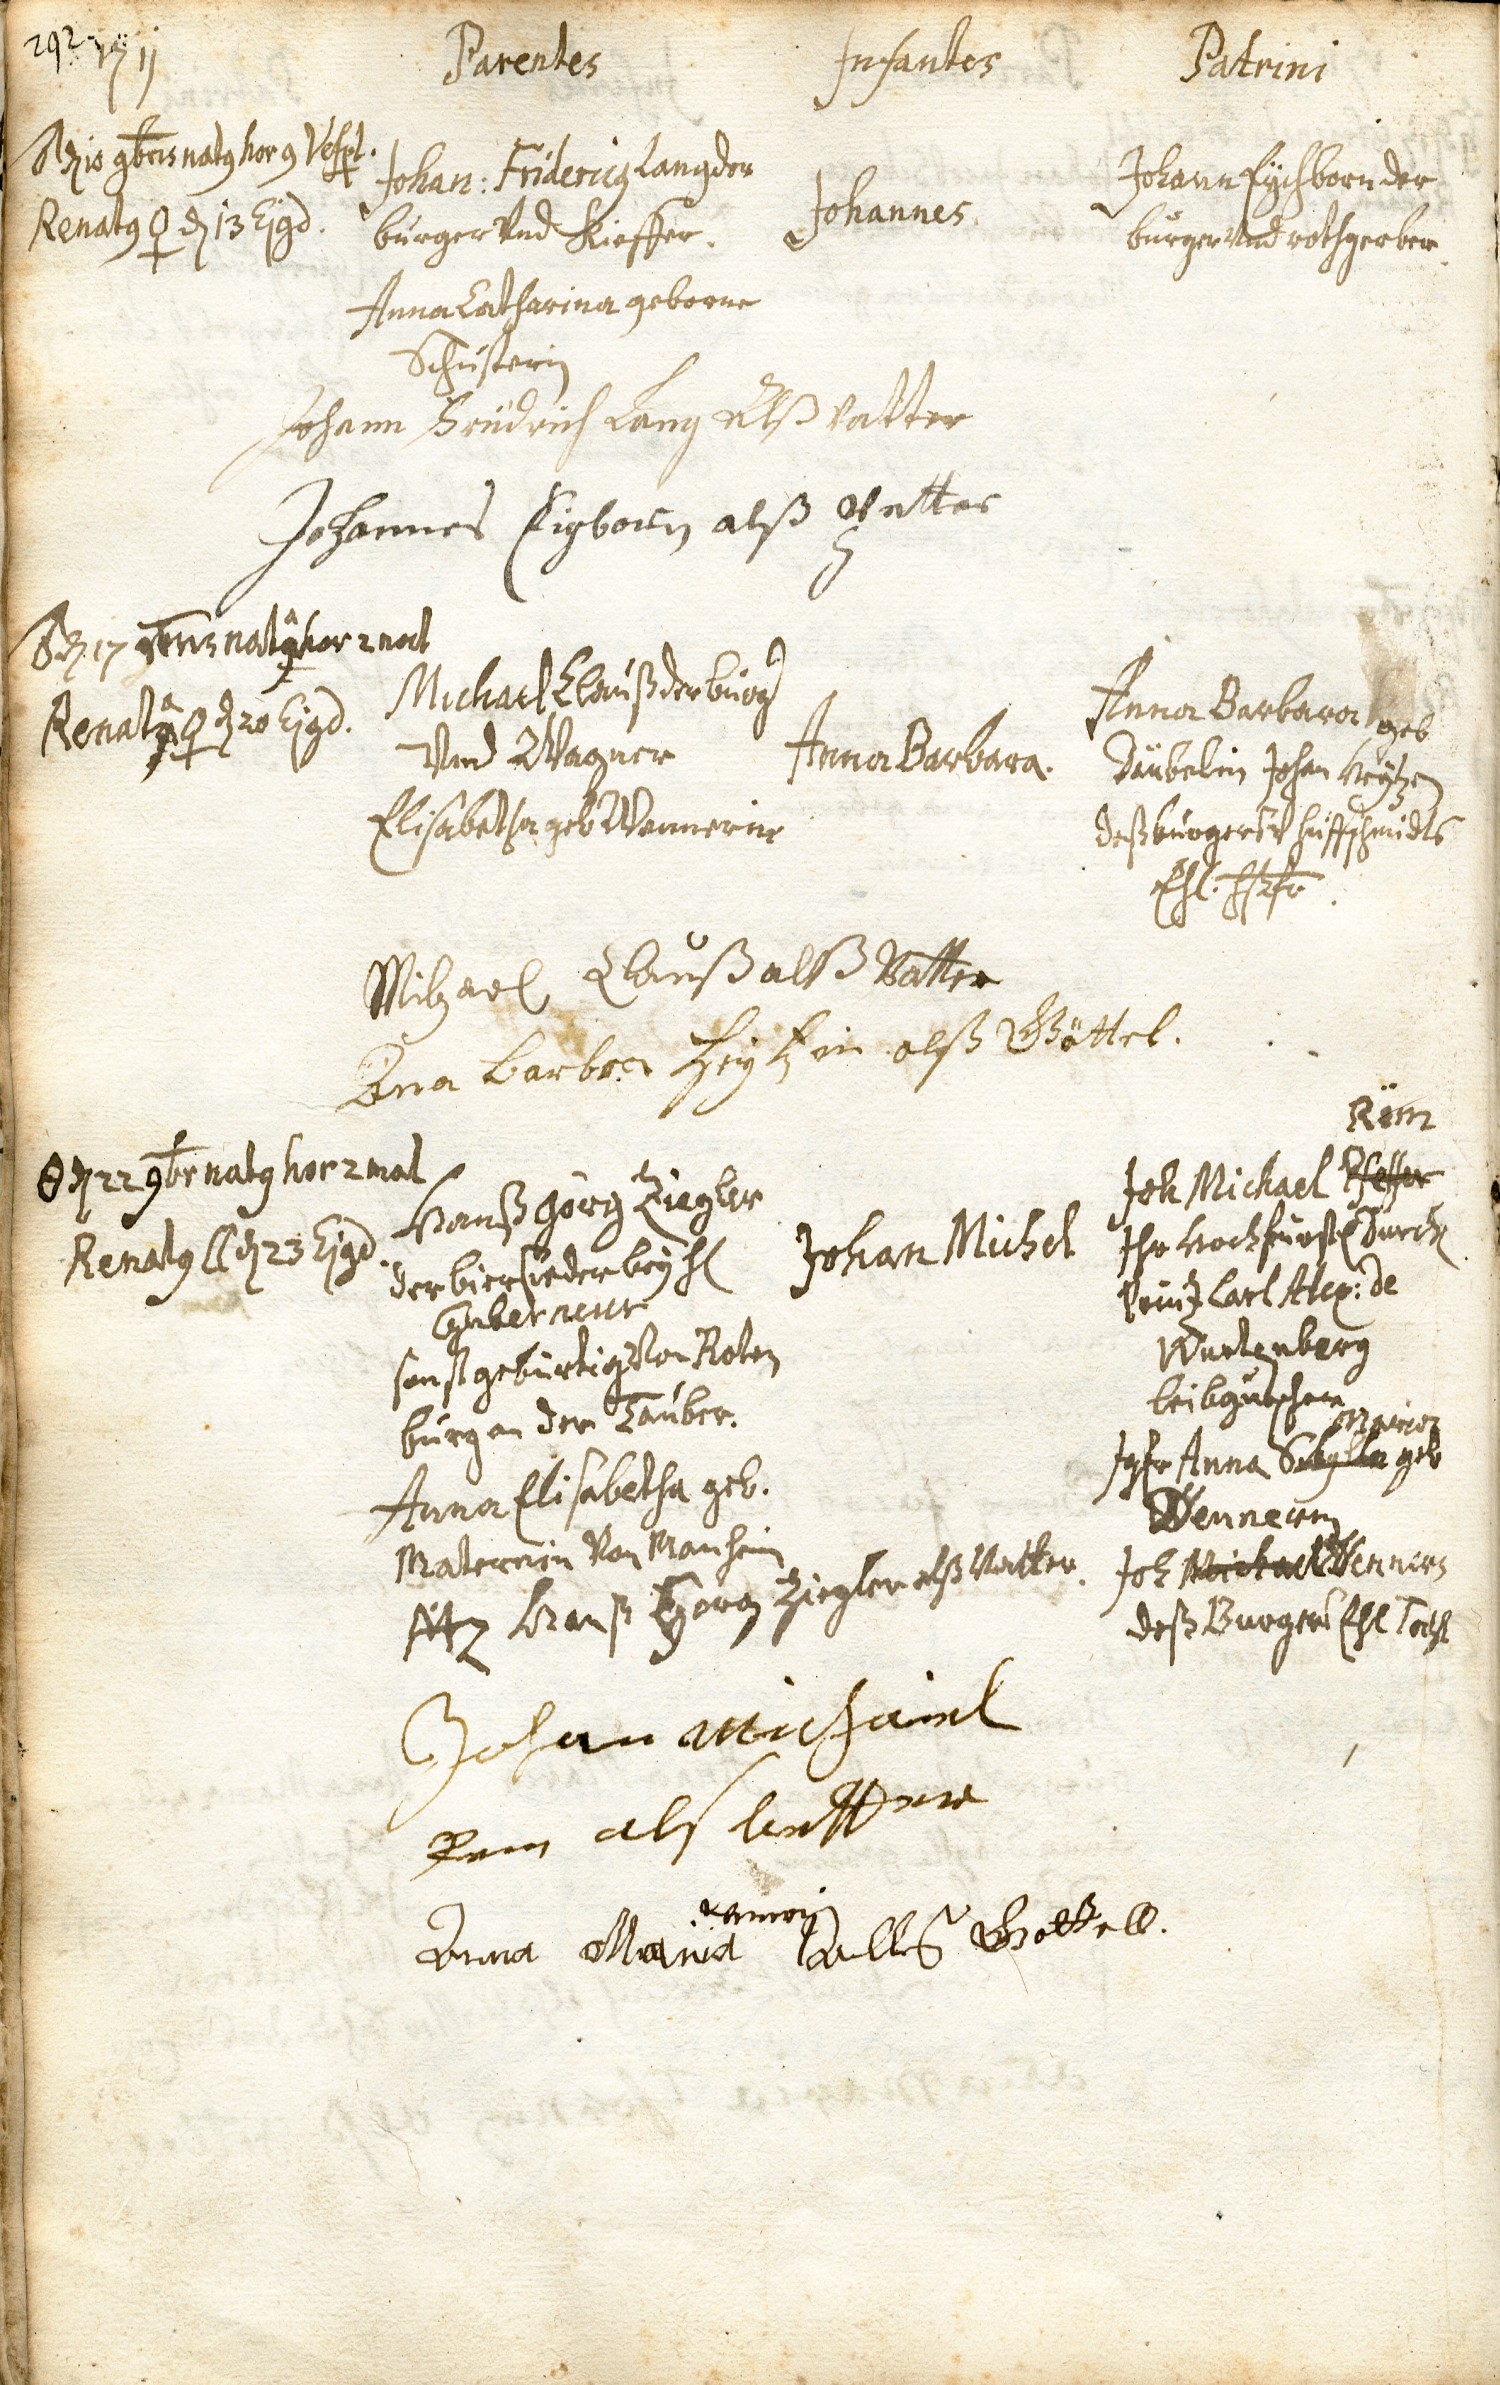 292
1711
Parentes
Infantes
Patrini
10 9bris natq hor 9 Vesp.
Renatq ♀ d 13 Ejqd.
Johan: Fridericq Lang der
burger Vnd Kieffer.
Anna Catharina geborne
Schusterin
Johannes.
Johann Eychborn der
burger und rothgerber
Johann Fridrich Lang Alß vatter
Johannes Eigborn alß
17 9bris nata hor 2 mat
Renata ♀ d 20 Ejqd.
Michael Clauß der burg
Vnd Wagner
Elisabetha geb Wennerin
Anna Barbara.
Anna Barbara geb
Däubelin Johan Heytzen
deß burgers V huffschmidts
Ehl.
Michael Clauß alß Vatter
Ana barbra Heytzin alß Göttel.
d 22 9br natq hor 2 mat
Renatq d 23 Ejqd.
Hanß Görg Ziegler
der biersieder bey H
Guberneur
sonst gebürtig Von Roten
burg an der Tauber.
Anna Elisabetha geb.
Maternin Von Manheim
Johan Michel
Röm
Joh Michael Pfeffer
Ihr Hochfürstl Durch
Prinz Carl Alex: de
Wurtenberg
leibgutscher
Maria
Jgfr Anna Sibylla geb
Wennerin
Joh Michael Wenners
deß Burgers Ehl Tocht
Hanß Georg Ziegler alß Vatter.
Johan Michaiel
Rem als
Anna Maria
Alls Gottell.